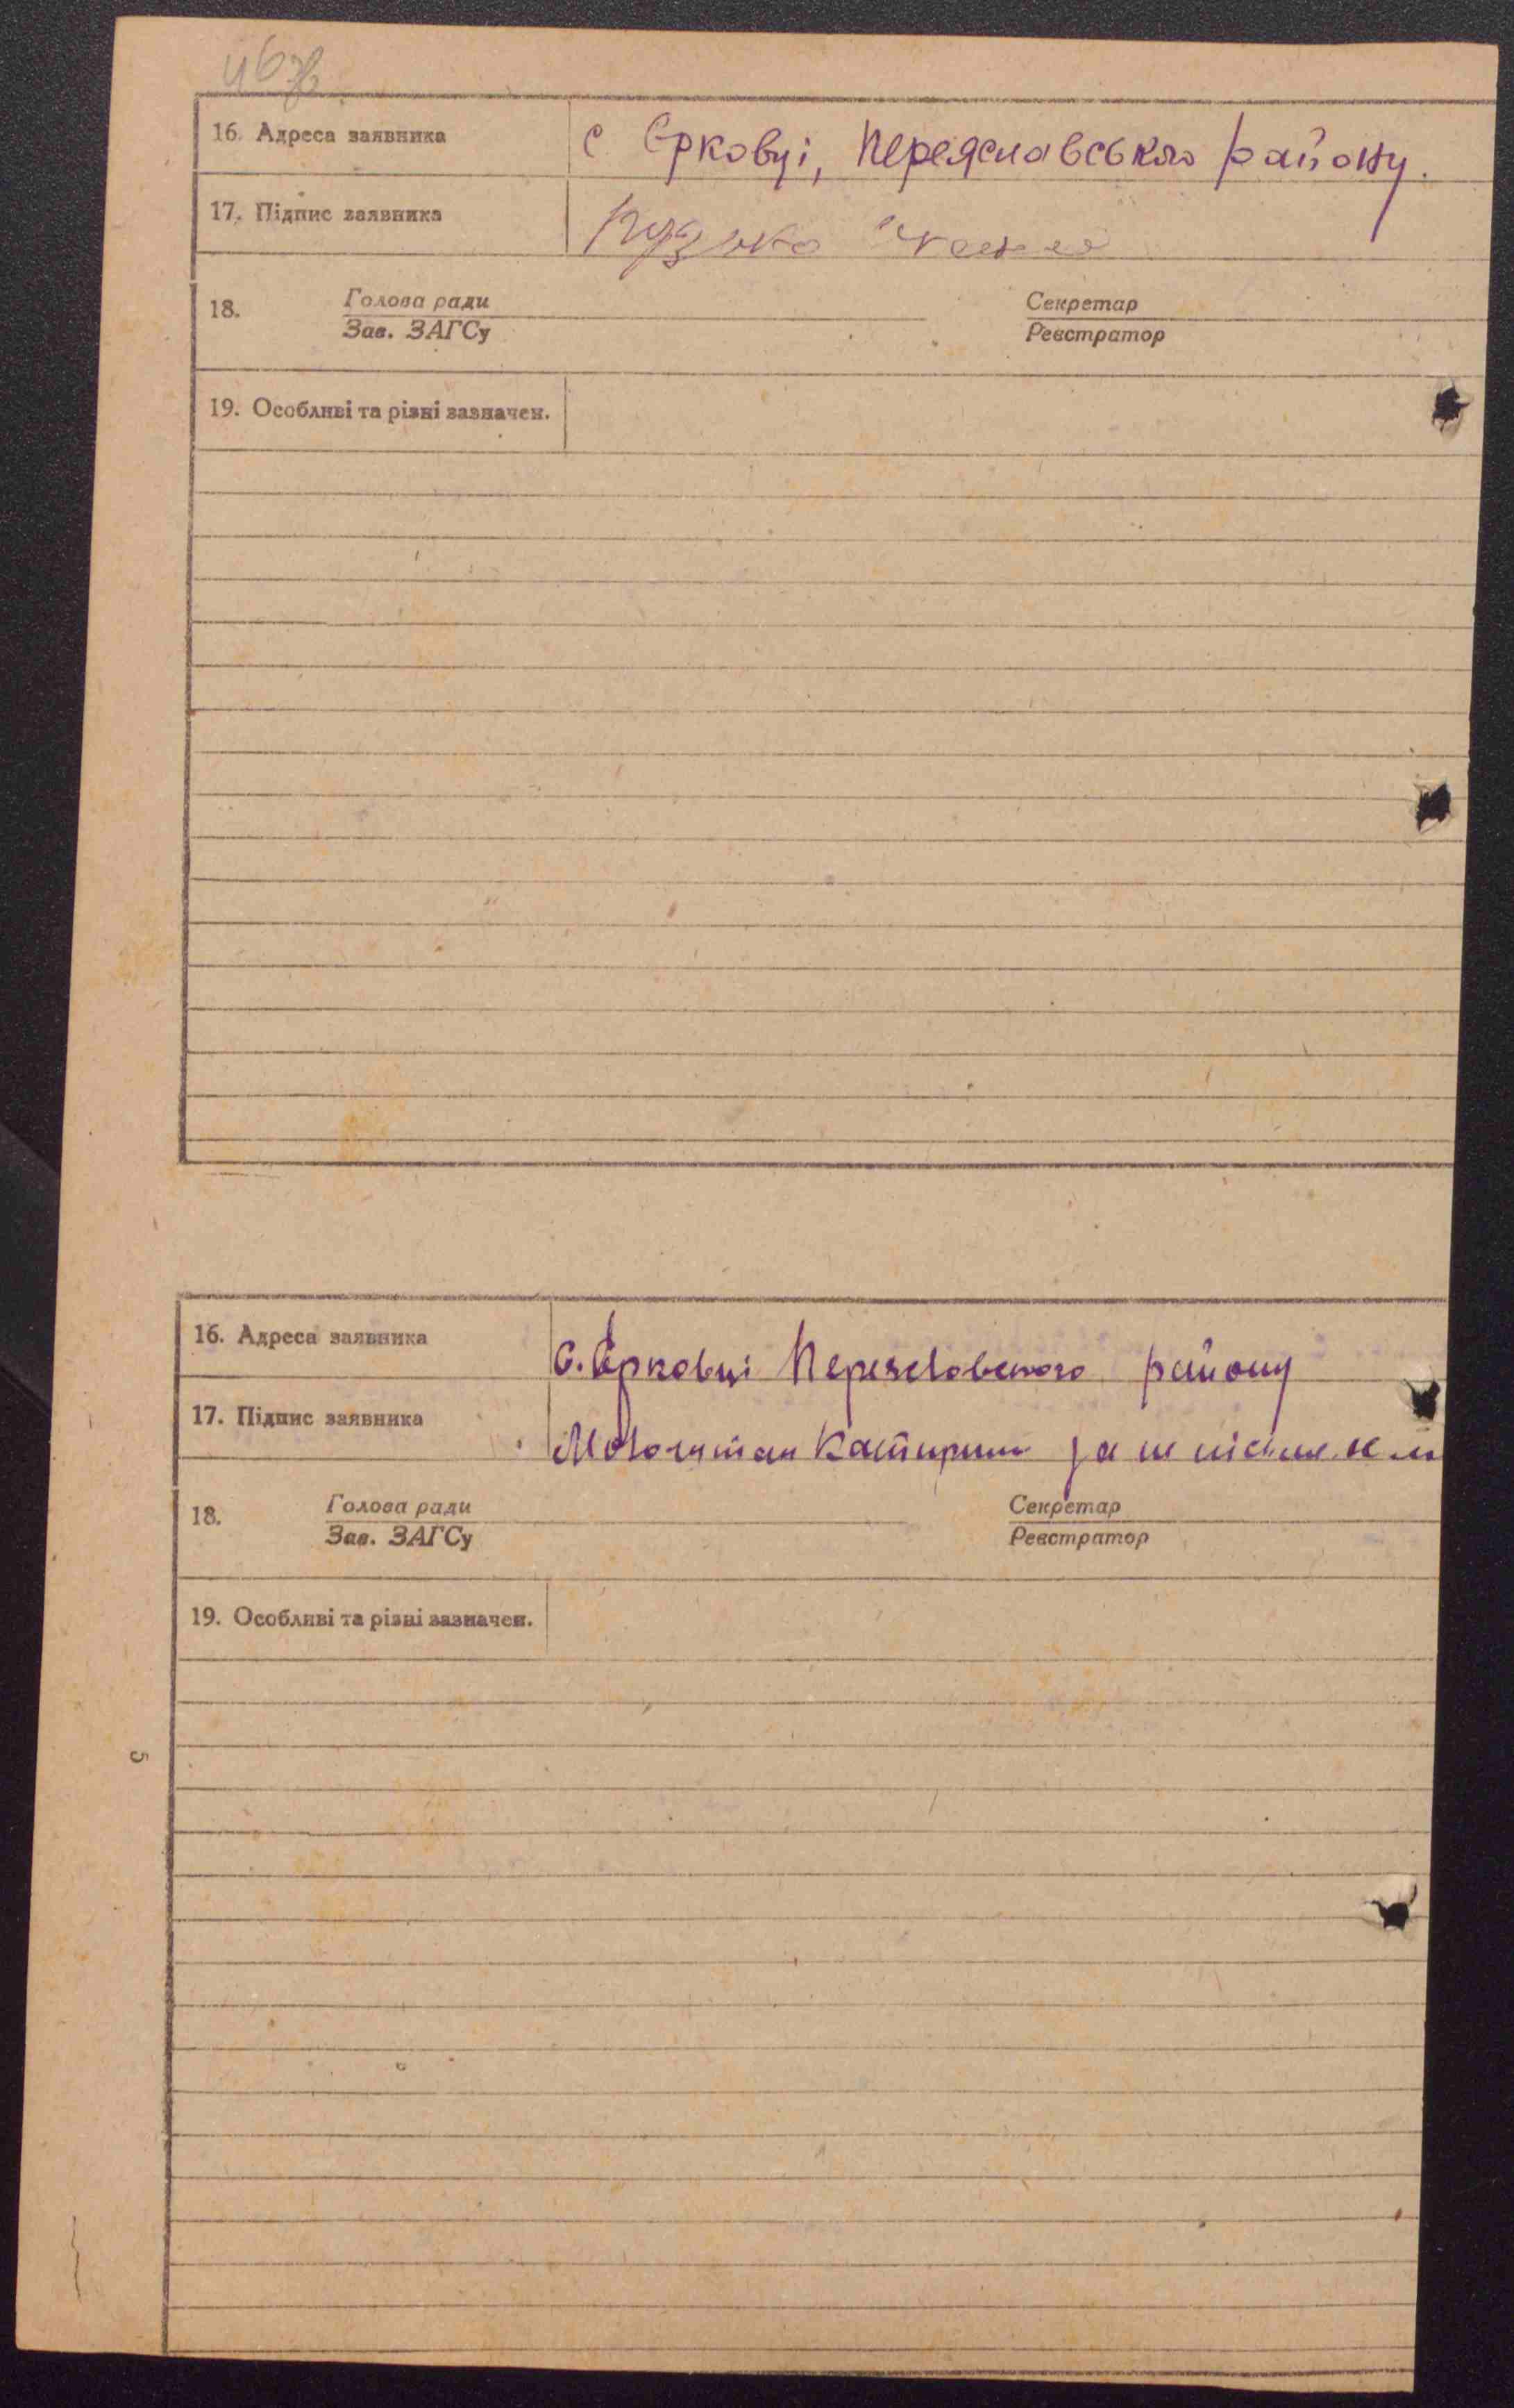 16. Адреса заявника с Єрковці, Переяславського району.
17. Підпис заявника
18. Голова ради Секретар
Зав. ЗАГСу Реєстратор
19. Особливі та різні зазначен.
16. Адреса заявника с. Єрковці Переяславського району
17. Підпис заявника
18. Голова ради Секретар
Зав. ЗАГСу Реєстратор
19. Особливі та різні зазначен.
5